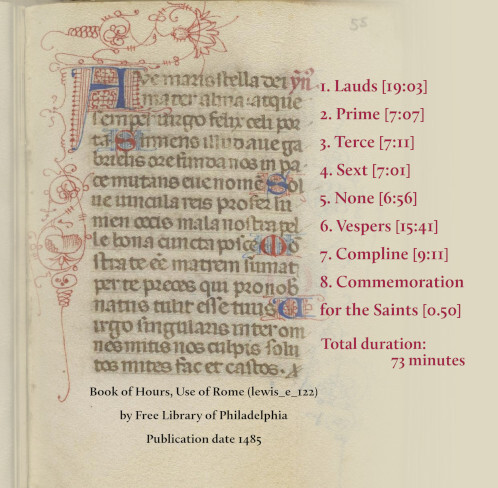 Ave maris stella dei yn̄
mater alma: atque
semper uirgo felix celi por
ta Sumens illud aue ga
brielis ore funda nos in pa
ce mutans eue nomē Sol
ue uincula reis profer lu
men cecis mala nostra pel
le bona cuncta posce Mō
stra te eē matrem sumat
per te preces qui pro nob
natus tulit esse tuus U
irgo singularis inter om
nes mitis nos culpis solu
tos mites fac et castos.
Book of Hours, Use of Rome (lewis_e_122)
by Free Library of Philadelphia
Publication date 1485
1. Lauds [19:03]
2. Prime [7:07]
3. Terce [7:11]
4. Sext [7:01]
5. None [6:56]
6. Vespers [15:41]
7. Compline [9:11]
8. Commemoration
for the Saints [0.50]
Total duration:
73 minutes